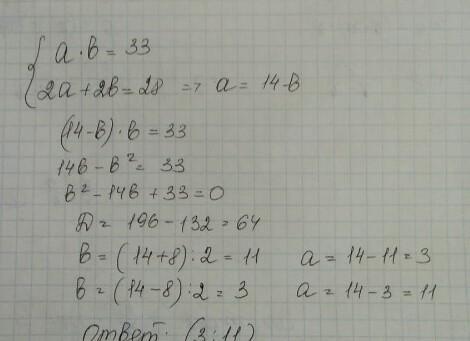 a · b = 33
2a + 2b = 28 => a = 14 - b
(14 - b) · b = 33
14b - b² = 33
b² - 14b + 33 = 0
D = 196 - 132 = 64
b = (14 + 8) : 2 = 11 a = 14 - 11 = 3
b = (14 - 8) : 2 = 3 a = 14 - 3 = 11
Ответ: (3; 11)